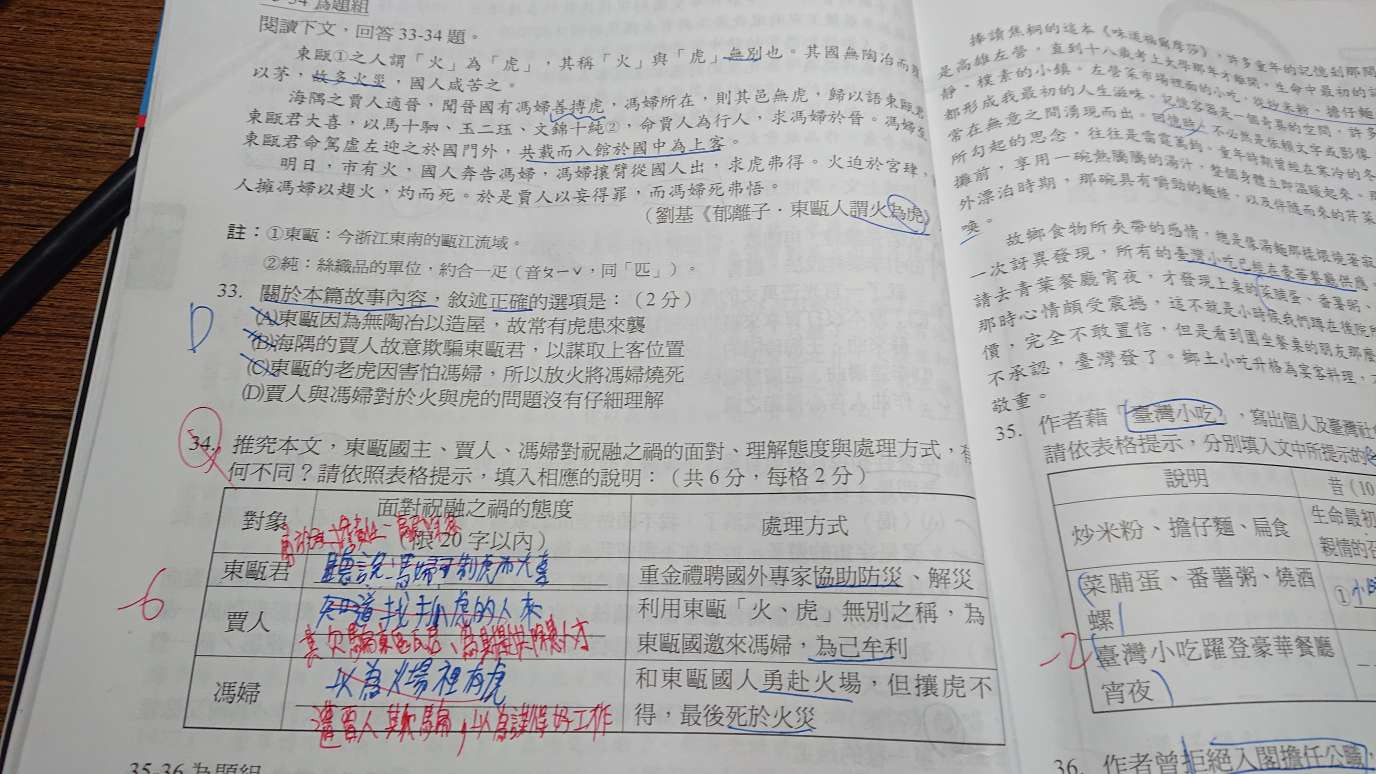 34 為題組
閱讀下文，回答 33-34 題。
東甌①之人謂「火」為「虎」，其稱「火」與「虎」無別也。其國無陶冶而
以茅，故多火災，國人咸苦之。
海隅之賈人適晉，聞晉國有馮婦善搏虎，馮婦所在，則其邑無虎，歸以語東甌君
東甌君大喜，以馬十駟、玉二玨、文錦十純②，命賈人為行人，求馮婦於晉。馮婦
東甌君命駕虛左迎之於國門外，共載而入館於國中為上客。
明日，市有火，國人奔告馮婦，馮婦攘臂從國人出，求虎弗得。火迫於宮肆，
人擁馮婦以趨火，灼而死。於是賈人以妄得罪，而馮婦死弗悟。
（劉基《郁離子．東甌人謂火為虎》
註：①東甌：今浙江東南的甌江流域。
②純：絲織品的單位，約合一疋（音ㄆㄧˇ，同「匹」）。
33. 關於本篇故事內容，敘述正確的選項是：（2 分）
D
(A)東甌因為無陶冶以造屋，故常有虎患來襲
(B)海隅的賈人故意欺騙東甌君，以謀取上客位置
(C)東甌的老虎因害怕馮婦，所以放火將馮婦燒死
(D)賈人與馮婦對於火與虎的問題沒有仔細理解
34. 推究本文，東甌國主、賈人、馮婦對祝融之禍的面對、理解態度與處理方式，有
何不同？請依照表格提示，填入相應的說明：（共 6 分，每格 2 分）
對象
面對祝融之禍的態度
（限 20 字以內）
處理方式
東甌君
聽說馮婦可制虎而大喜
重金禮聘國外專家協助防災、解災
-6
賈人
知道找抓虎的人來
利用東甌「火、虎」無別之稱，為
東甌國邀來馮婦，為己牟利
馮婦
以為火場裡有虎
遭賈人欺騙，以為謀得好工作
和東甌國人勇赴火場，但攘虎不
得，最後死於火災
35-36 為題組
捧讀焦桐的這本《味道福爾摩莎》，許多童年的記憶剎那間
是高雄左營，直到十八歲考上大學那年才離開，生命中最初的
靜、樸素的小鎮。左營菜市場裡面的小吃，從炒米粉、擔仔麵
都形成我最初的人生滋味。記憶容器是一個奇異的空間，許多
常在無意之間湧現而出。回憶些人不必然是依賴文字或影像
所勾起的思念，往往是雷霆萬鈞。童年時期曾經在寒冷的冬
攤前，享用一碗熱騰騰的湯汁，整個身體立即溫暖起來。
外漂泊時期，那碗具有嚼勁的麵條，以及伴隨而來的芹菜
喚。
故鄉食物所夾帶的感情，總是像湯麵那樣
一次訝異發現，所有的臺灣小吃已經在豪華餐廳供應。
請去青葉餐廳宵夜，才發現上桌的菜脯蛋、番薯粥、
那時心情頗受震撼，這不就是小時候我們蹲在後院所
價，完全不敢置信，但是看到圍坐餐桌的朋友那麼
不承認，臺灣發了。鄉土小吃升格為宴客料理，
敬重。
35. 作者藉「臺灣小吃」，寫出個人及臺灣社
請依表格提示，分別填入文中所提示的
說明
昔（10
炒米粉、擔仔麵、扁食
生命最初
親情的召
菜脯蛋、番薯粥、燒酒
螺
①小
-2
臺灣小吃躍登豪華餐廳
宵夜
36. 作者曾拒絕入閣擔任公職，